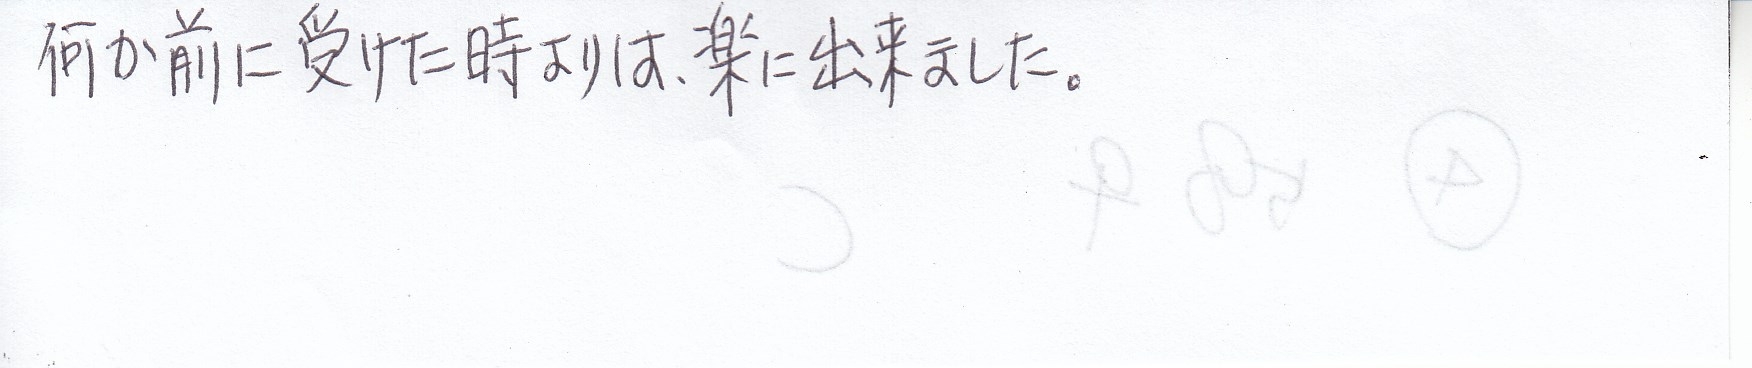 何か前に受けた時よりは、楽に出来ました。